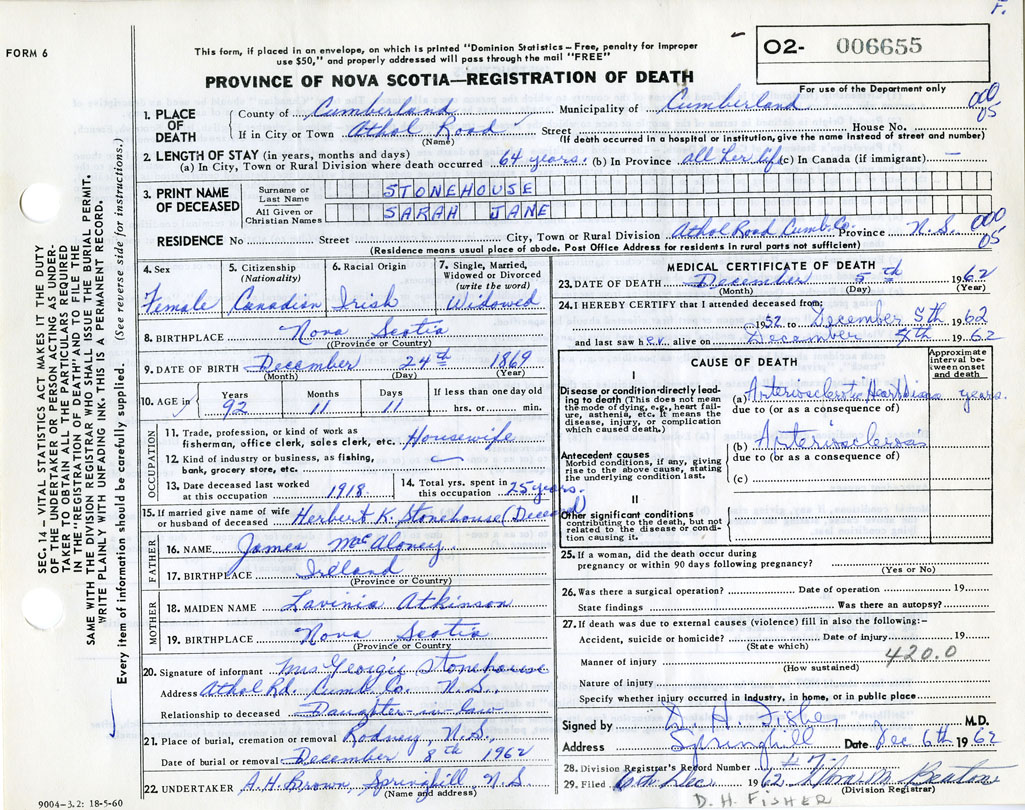 F.
FORM 6
This form, if placed in an envelope, on which is printed "Dominion Statistics – Free, penalty for improper
use $50," and properly addressed will pass through the mail "FREE"
O2- 006655
For use of the Department only
PROVINCE OF NOVA SCOTIA—REGISTRATION OF DEATH
000
05
1. PLACE OF DEATH
County of Cumberland Municipality of Cumberland
If in City or Town Athol Road Street House No.
(Name) (If death occurred in a hospital or institution, give the name instead of street and number)
2. LENGTH OF STAY (in years, months and days)
(a) In City, Town or Rural Division where death occurred 64 years. (b) In Province all her life (c) In Canada (if immigrant) —
3. PRINT NAME OF DECEASED
Surname or Last Name STONEHOUSE
All Given or Christian Names SARAH JANE
RESIDENCE No Street City, Town or Rural Division Athol Road Cumb. Co. Province N.S.
000
05
(Residence means usual place of abode. Post Office Address for residents in rural parts not sufficient)
4. Sex
Female
5. Citizenship
(Nationality)
Canadian
6. Racial Origin
Irish
7. Single, Married,
Widowed or Divorced
(write the word)
Widowed
8. BIRTHPLACE Nova Scotia
(Province or Country)
9. DATE OF BIRTH December 24th 1869
(Month) (Day) (Year)
10. AGE in Years Months Days If less than one day old
92 11 11 hrs. or min.
OCCUPATION
11. Trade, profession, or kind of work as
fisherman, office clerk, sales clerk, etc. Housewife
12. Kind of industry or business, as fishing,
bank, grocery store, etc.
13. Date deceased last worked
at this occupation 1918.
14. Total yrs. spent in
this occupation 25 years.
15. If married give name of wife
or husband of deceased Herbert K. Stonehouse (Deceased)
FATHER
16. NAME James McAloney
17. BIRTHPLACE Ireland
(Province or Country)
MOTHER
18. MAIDEN NAME Lavinia Atkinson
19. BIRTHPLACE Nova Scotia
(Province or Country)
20. Signature of informant Mrs Georgie Stonehouse
Address Athol Rd. Cumb. Co. N.S.
Relationship to deceased Daughter-in-law
21. Place of burial, cremation or removal Rodney N.S.
Date of burial or removal December 8th 1962
22. UNDERTAKER A.H. Brown Springhill N.S
(Name and address)
9004-3.2: 18-5-60
MEDICAL CERTIFICATE OF DEATH
23. DATE OF DEATH December 5th 1962
(Month) (Day) (Year)
24. I HEREBY CERTIFY that I attended deceased from:
1952 to December 5th 1962
and last saw her alive on December 4th 1962
CAUSE OF DEATH
Approximate
interval between onset
and death
I
Disease or condition directly leading to death (This does not mean
the mode of dying, e.g., heart failure, asthenia, etc. It means the
disease, injury, or complication
which caused death.)
(a) Arteriosclerotic Heart Disease years.
due to (or as a consequence of)
(b) Arteriosclerosis
due to (or as a consequence of)
(c)
Antecedent causes
Morbid conditions, if any, giving
rise to the above cause, stating
the underlying condition last.
II
Other significant conditions
contributing to the death, but not
related to the disease or condition causing it.
25. If a woman, did the death occur during
pregnancy or within 90 days following pregnancy?
(Yes or No)
26. Was there a surgical operation? Date of operation 19
State findings Was there an autopsy?
27. If death was due to external causes (violence) fill in also the following:-
Accident, suicide or homicide? Date of injury 19
(State which)
Manner of injury 420.0
(How sustained)
Nature of injury
Specify whether injury occurred in industry, in home, or in public place
Signed by D. H. Fisher M.D.
Address Springhill Date Dec 6th 1962
28. Division Registrar's Record Number
29. Filed 6th Dec 1962
(Division Registrar)
D. H. FISHER
SEC. 14 – VITAL STATISTICS ACT MAKES IT THE DUTY
OF THE UNDERTAKER OR PERSON ACTING AS UNDERTAKER TO OBTAIN ALL THE PARTICULARS REQUIRED
IN THE "REGISTRATION OF DEATH" AND TO FILE THE
SAME WITH THE DIVISION REGISTRAR WHO SHALL ISSUE THE BURIAL PERMIT.
WRITE PLAINLY WITH UNFADING INK. THIS IS A PERMANENT RECORD.
Every item of information should be carefully supplied. (See reverse side for instructions.)